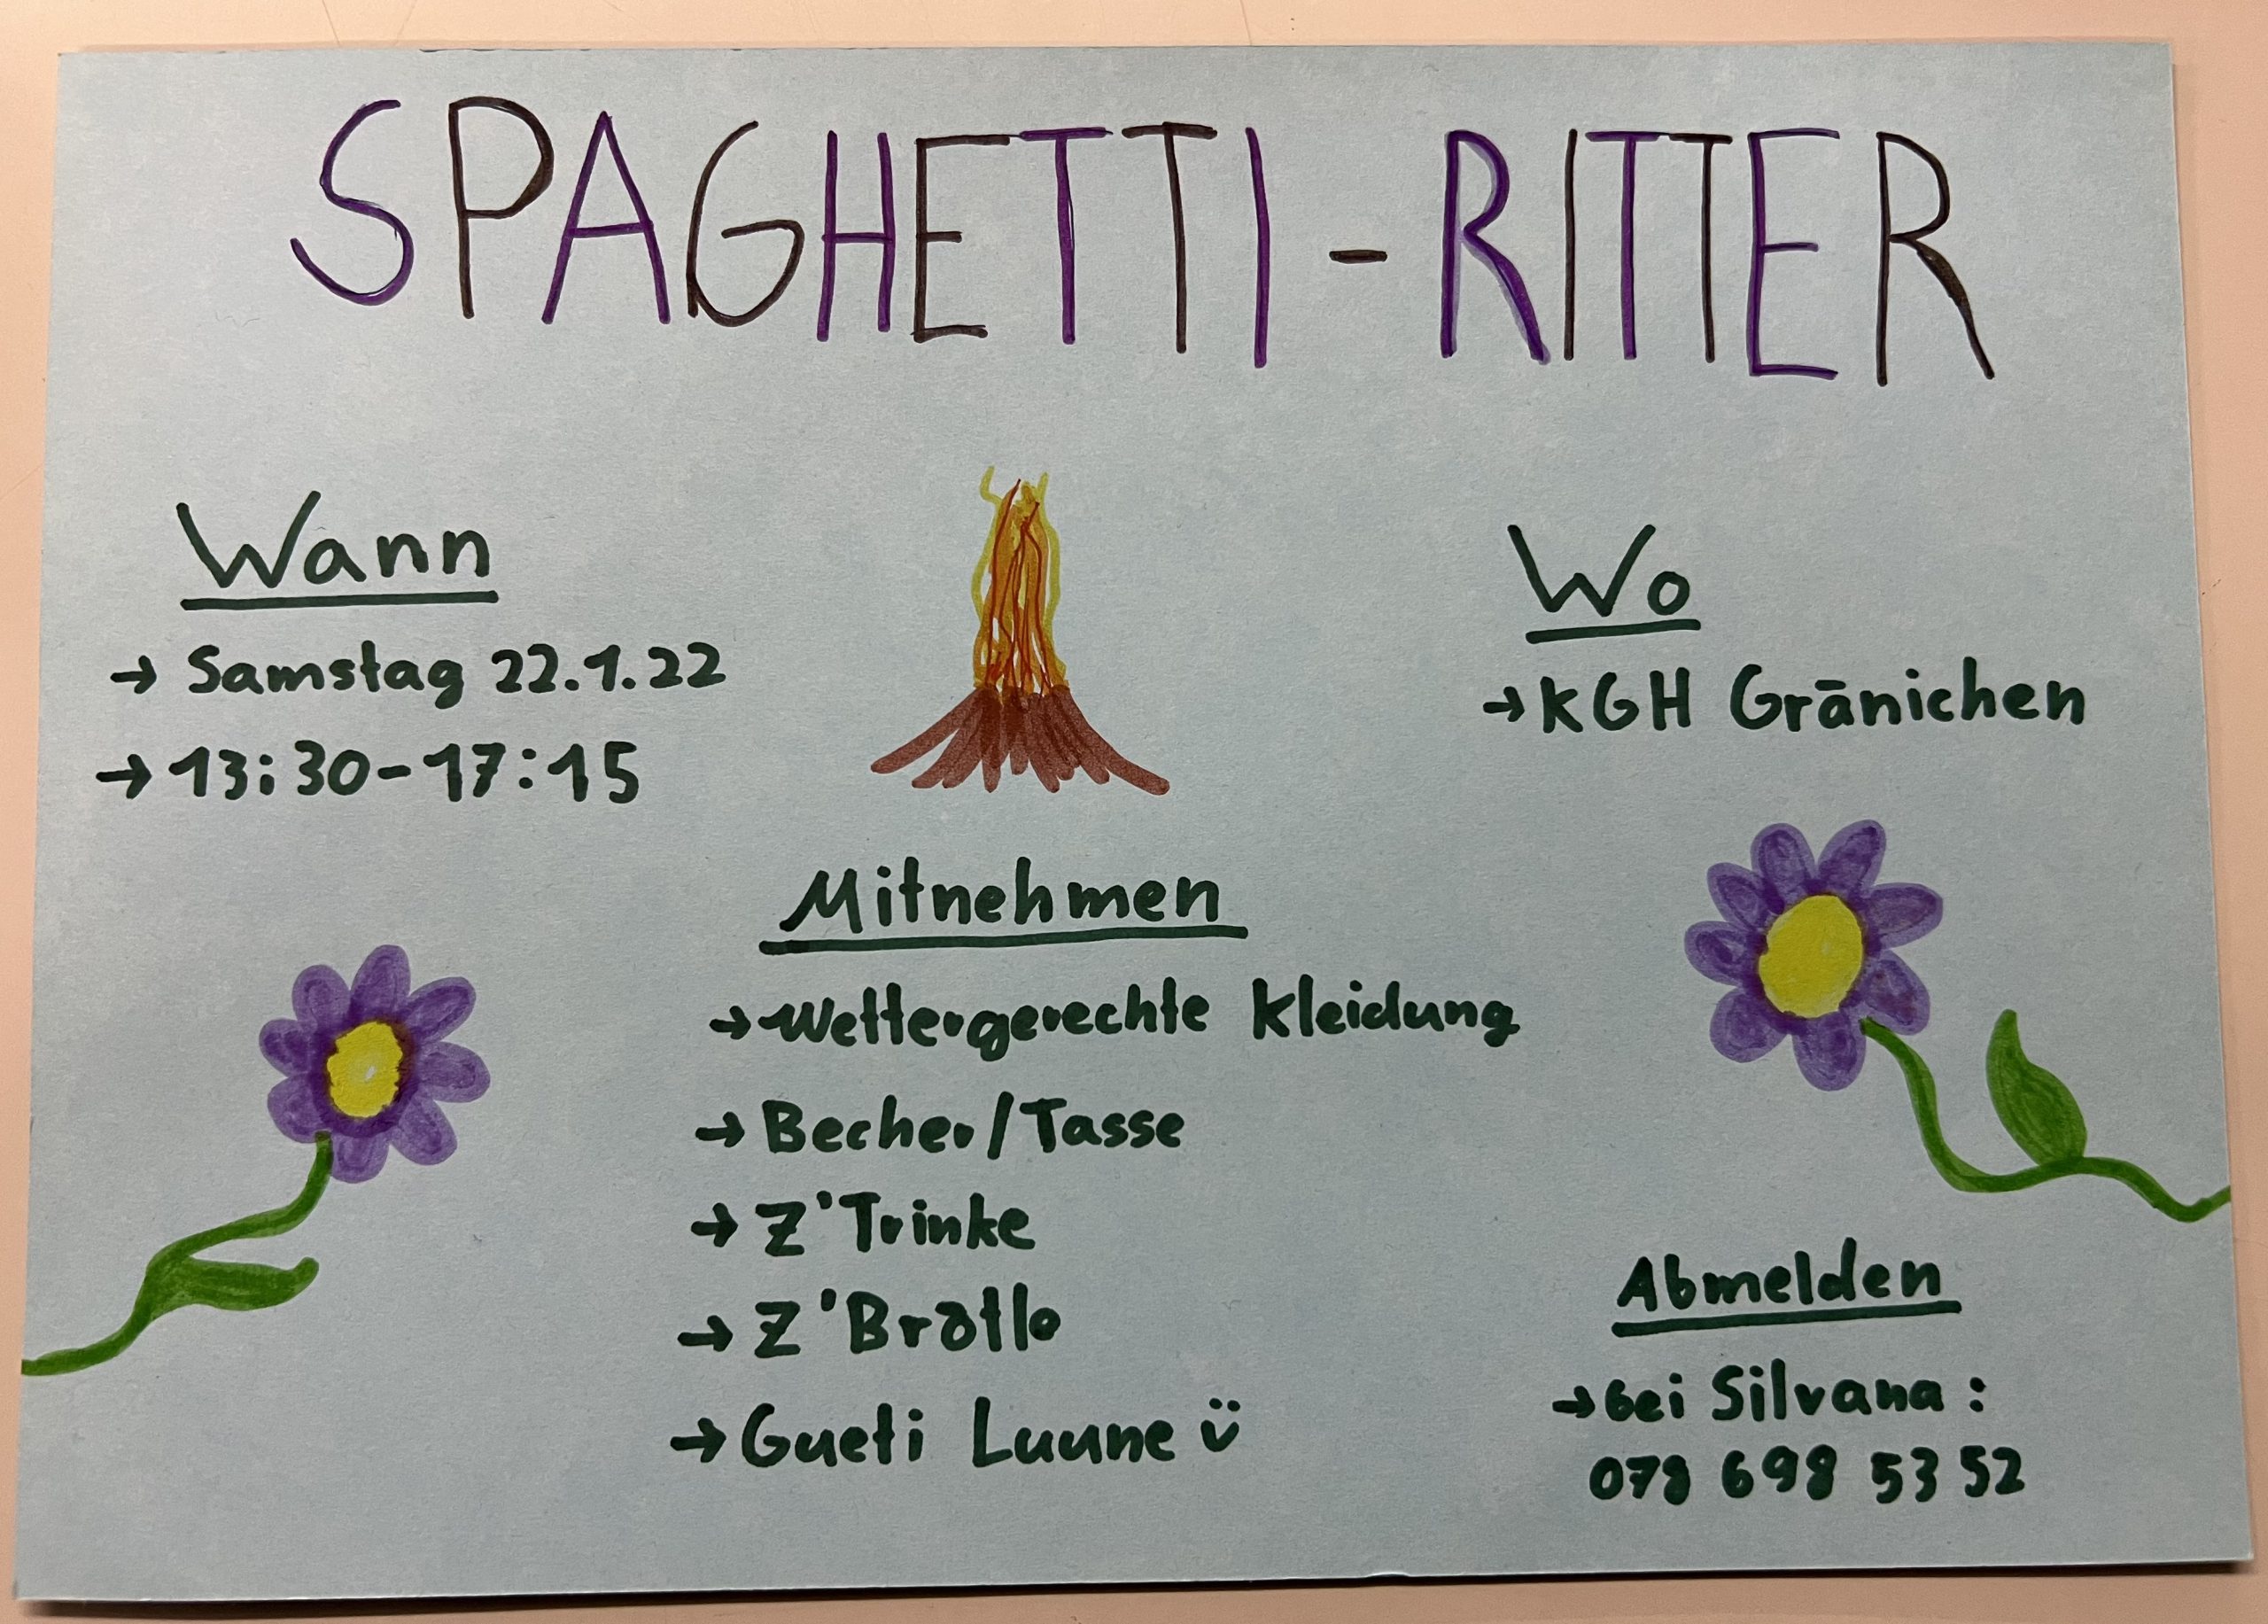 SPAGHETTI-RITTER
Wann
→ Samstag 22.1.22
→ 13:30-17:15
Wo
→ KGH Gränichen
Mitnehmen
→ Wettergerechte Kleidung
→ Becher/Tasse
→ Z'Trinke
→ Z'Brötle
→ Gueti Luune ü
Abmelden
→ bei Silvana:
078 698 53 52